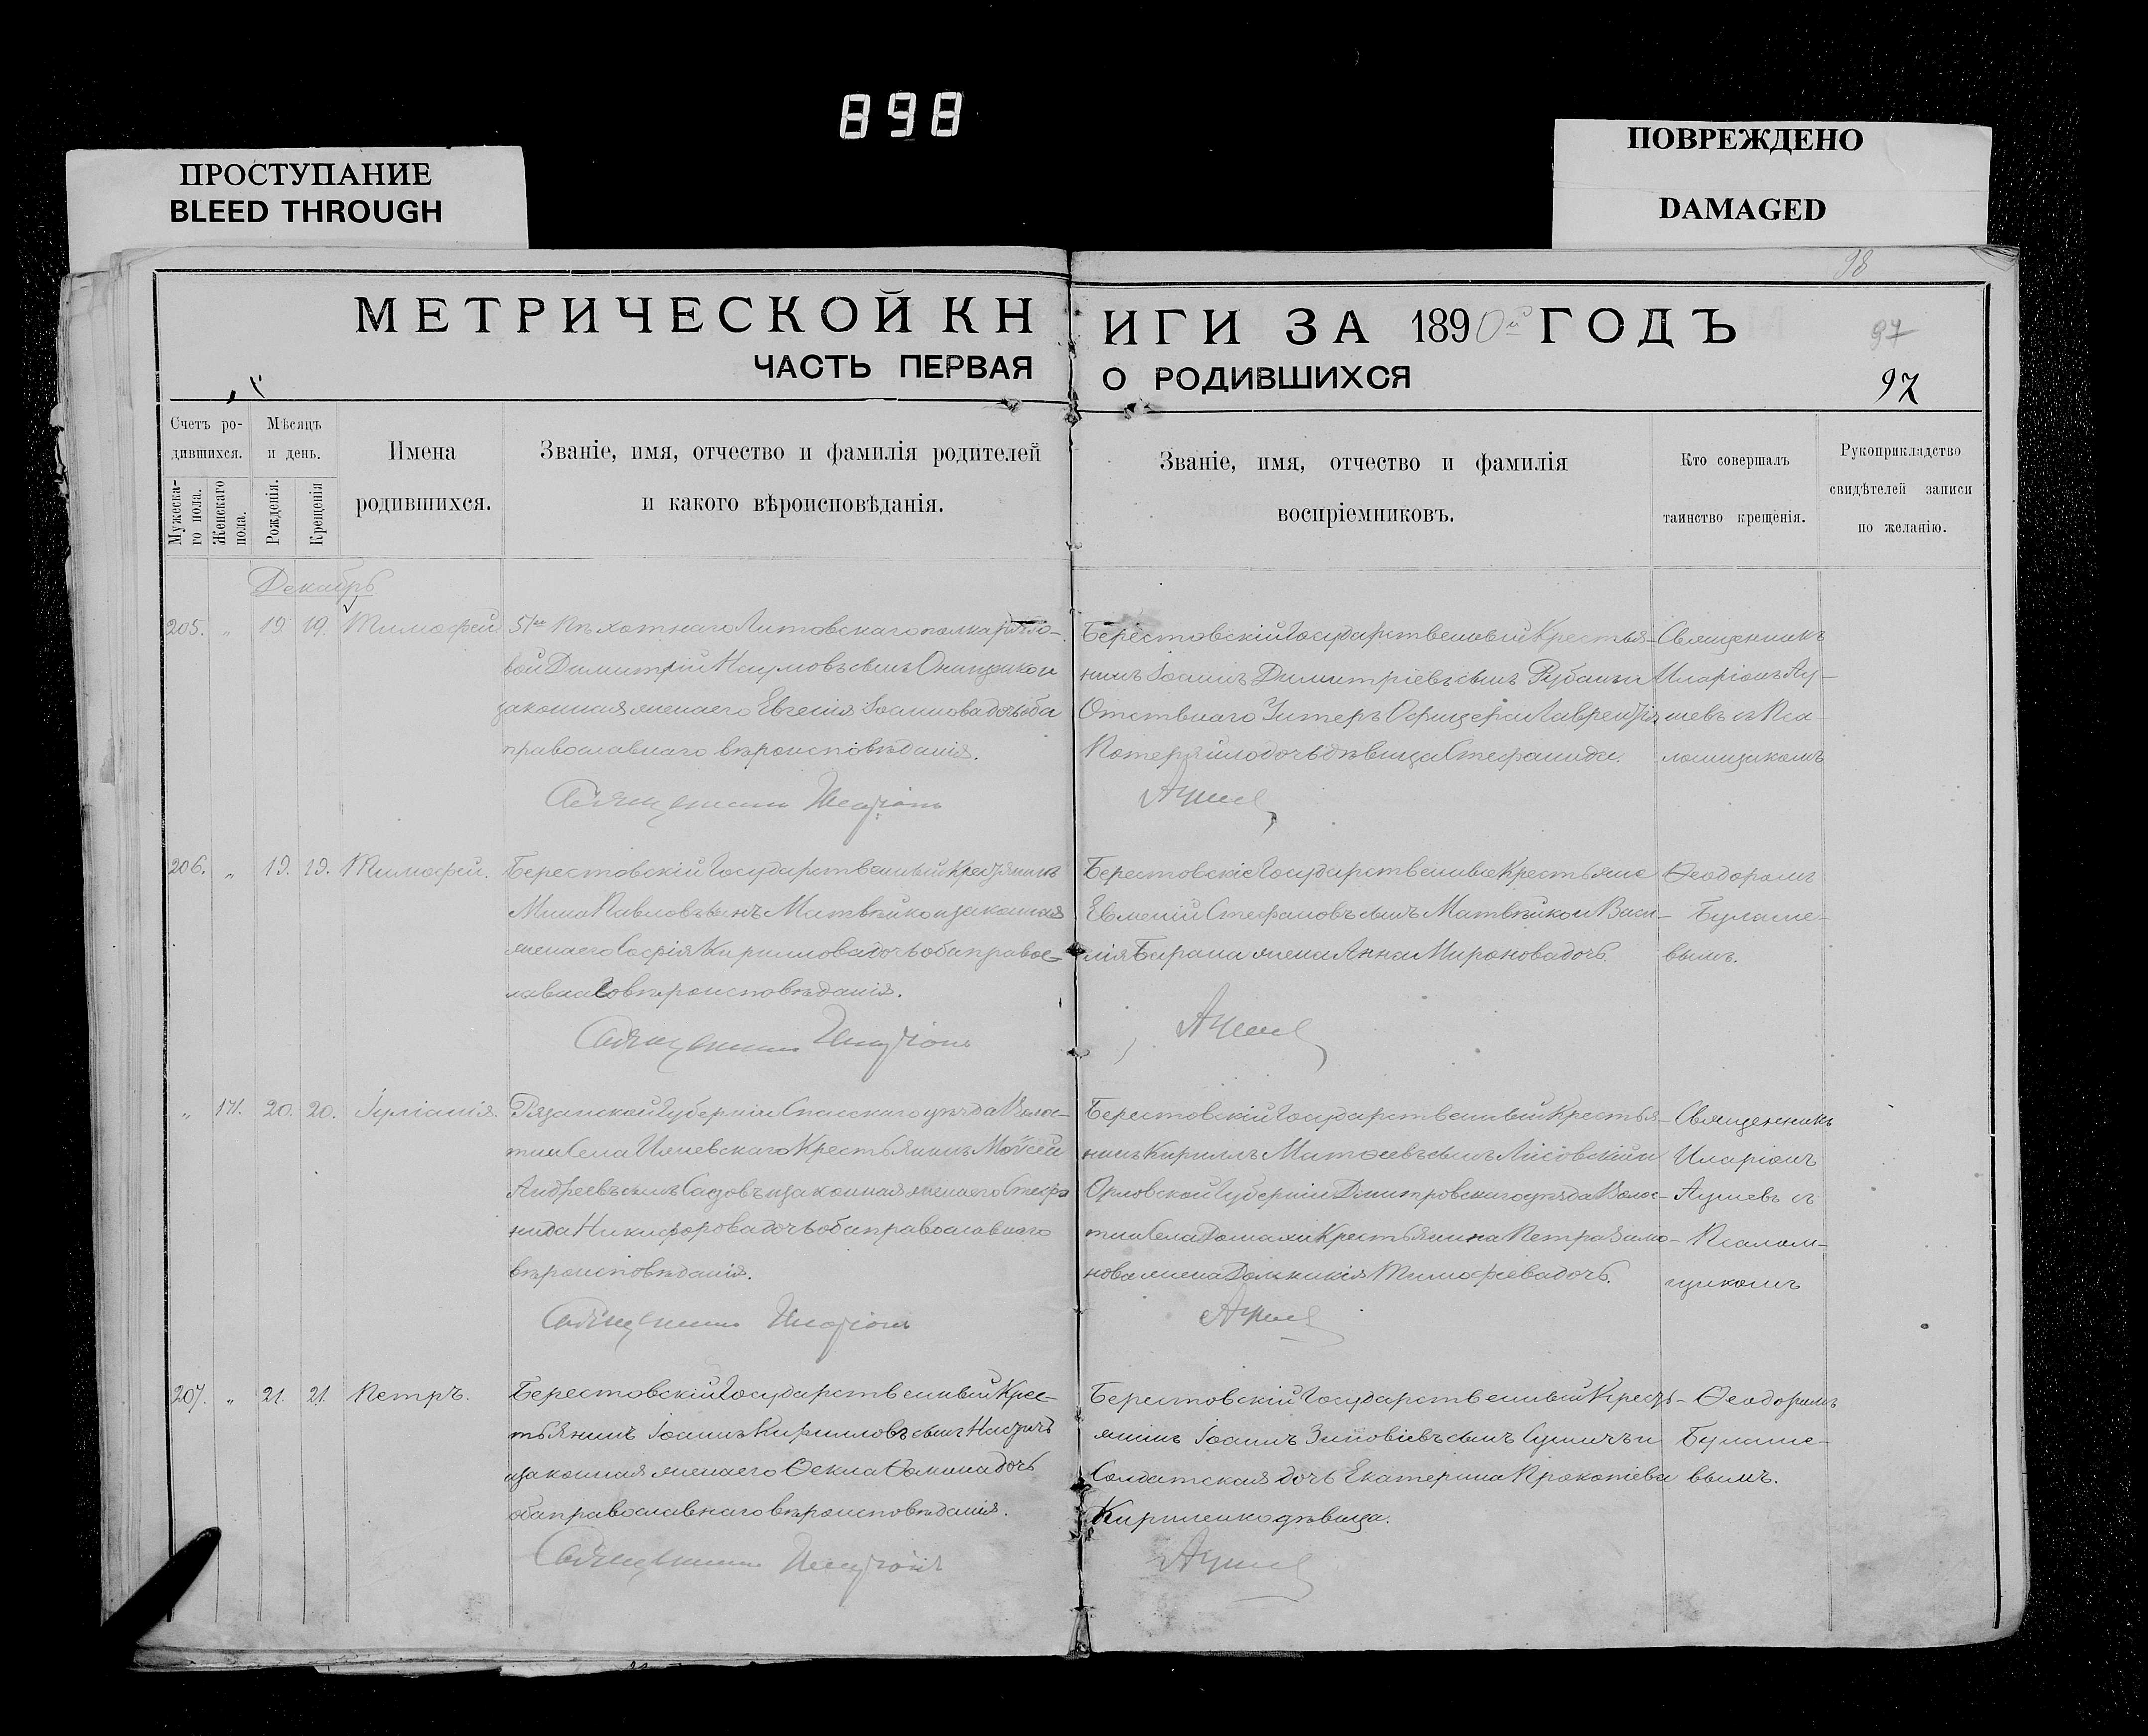 898
ПРОСТУПАНИЕ
BLEED THROUGH
ПОВРЕЖДЕНО
DAMAGED
98
МЕТРИЧЕСКОЙ КНИГИ ЗА 1890й ГОДЪ
97
ЧАСТЬ ПЕРВАЯ О РОДИВШИХСЯ
97
Счетъ ро-
дившихся.
Мужеска-
го пола.
Женскаго
пола.
Мѣсяцъ
и день.
Рожденія.
Крещенія
Имена
родившихся.
Званіе, имя, отчество и фамилія родителей
и какого вѣроисповѣданія.
Званіе, имя, отчество и фамилія
воспріемниковъ.
Кто совершалъ
таинство крещенія.
Рукоприкладство
свидѣтелей записи
по желанію.
Декабрь
205. „ 19 19. Тимофей
51го Пѣхотнаго Литовскаго полка рядо-
вой Димитрій Наумовъ сынъ и
законная жена его Евгенія Іоаннова дочь оба
православнаго вѣроисповѣданія.
Священникъ Иларіонъ
Берестовскій Государственный Крестья-
нинъ Іоаннъ Димитріевъ сынъ и
Унтеръ Офицера Лаврентія
дочь дѣвица Стефанида.
Аушев
Священникъ
Иларіонъ Ау-
шевъ съ Пса-
ломщикомъ
206. „ 19. 19. Тимофей.
Берестовскій Государственный Крестьянинъ
Мина Павловъ сынъ Матвѣйко и законная
жена его Софія Кириллова дочь оба правос-
лавнаго вѣроисповѣданія.
Священникъ Иларіонъ
Берестовскіе Государственные Крестьяне
Евменій Стефановъ сынъ Матвѣйко и Васи-
лія Барана жена Анна Миронова дочь.
Аушев
Ѳеодоромъ
Булаше-
вымъ.
„ 171. 20. 20. Іуліанія.
Рязанской Губерніи Спасскаго уѣзда Волос-
ти и Села Крестьянинъ Моѵсей
Андреевъ сынъ и законная жена его Стефа
нида Никифорова дочь оба православнаго
вѣроисповѣданія.
Священникъ Иларіонъ
Берестовскій Государственный Крестья-
нинъ Кириллъ сынъ Лисовскій и
Орловской Губерніи Дмитровскаго уѣзда Волос-
ти и Села Домахи Крестьянина Петра
жена Домникія Тимофѣева дочь.
Аушев
Священникъ
Иларіонъ
Аушевъ съ
Псалом-
щикомъ
207. „ 21. 21. Петръ.
Берестовскій Государственный Крес-
тьянинъ Іоаннъ Кирилловъ сынъ
и законная жена его Ѳекла Ѳомина дочь
оба православнаго вѣроисповѣданія.
Священникъ Иларіонъ
Берестовскій Государственный Кресть-
янинъ Іоаннъ Зиновіевъ сынъ и
Солдатская дочь Екатерина Прокопіева
Кириленко дѣвица.
Аушев
Ѳеодоромъ
Булаше-
вымъ.